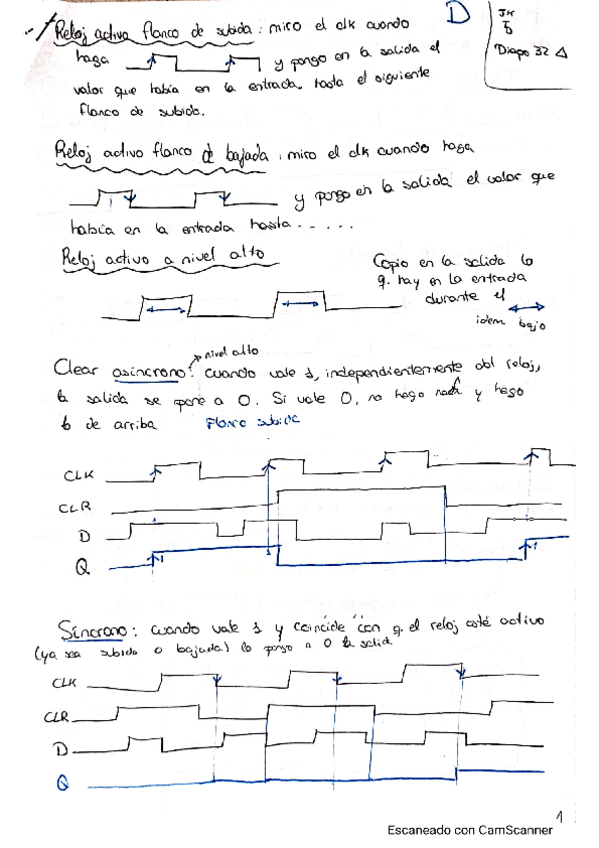 Reloj activo flanco de subida: miro el clk cuando
D
JK
Diapo 32 Δ
haga y pongo en la salida el
valor que había en la entrada, hasta el siguiente
flanco de subida.
Reloj activo flanco de bajada: miro el clk cuando haga
y pongo en la salida el valor que
había en la entrada hasta.....
Reloj activo a nivel alto
Copio en la salida lo
q. hay en la entrada
durante el
idem bajo
nivel alto
Clear asíncrono: cuando vale 1, independientemente del reloj,
la salida se pone a 0. Si vale 0, no hago nada y hago
lo de arriba
Flanco subida
CLK
CLR
D
Q
1
1
Síncrono: cuando vale 1 y "coincide" con q. el reloj esté activo
(ya sea subida o bajada) lo pongo a 0 la salid
CLK
CLR
D
Q
1
Escaneado con CamScanner